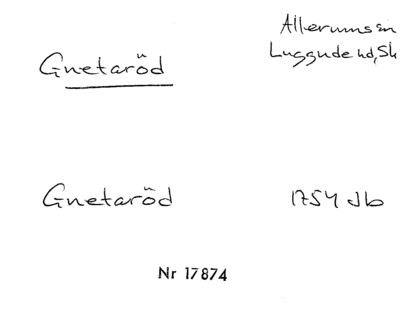 Allerums sn
Luggude hd, Sk
Gnetaröd
Gnetaröd 1754 Jb
Nr 17874